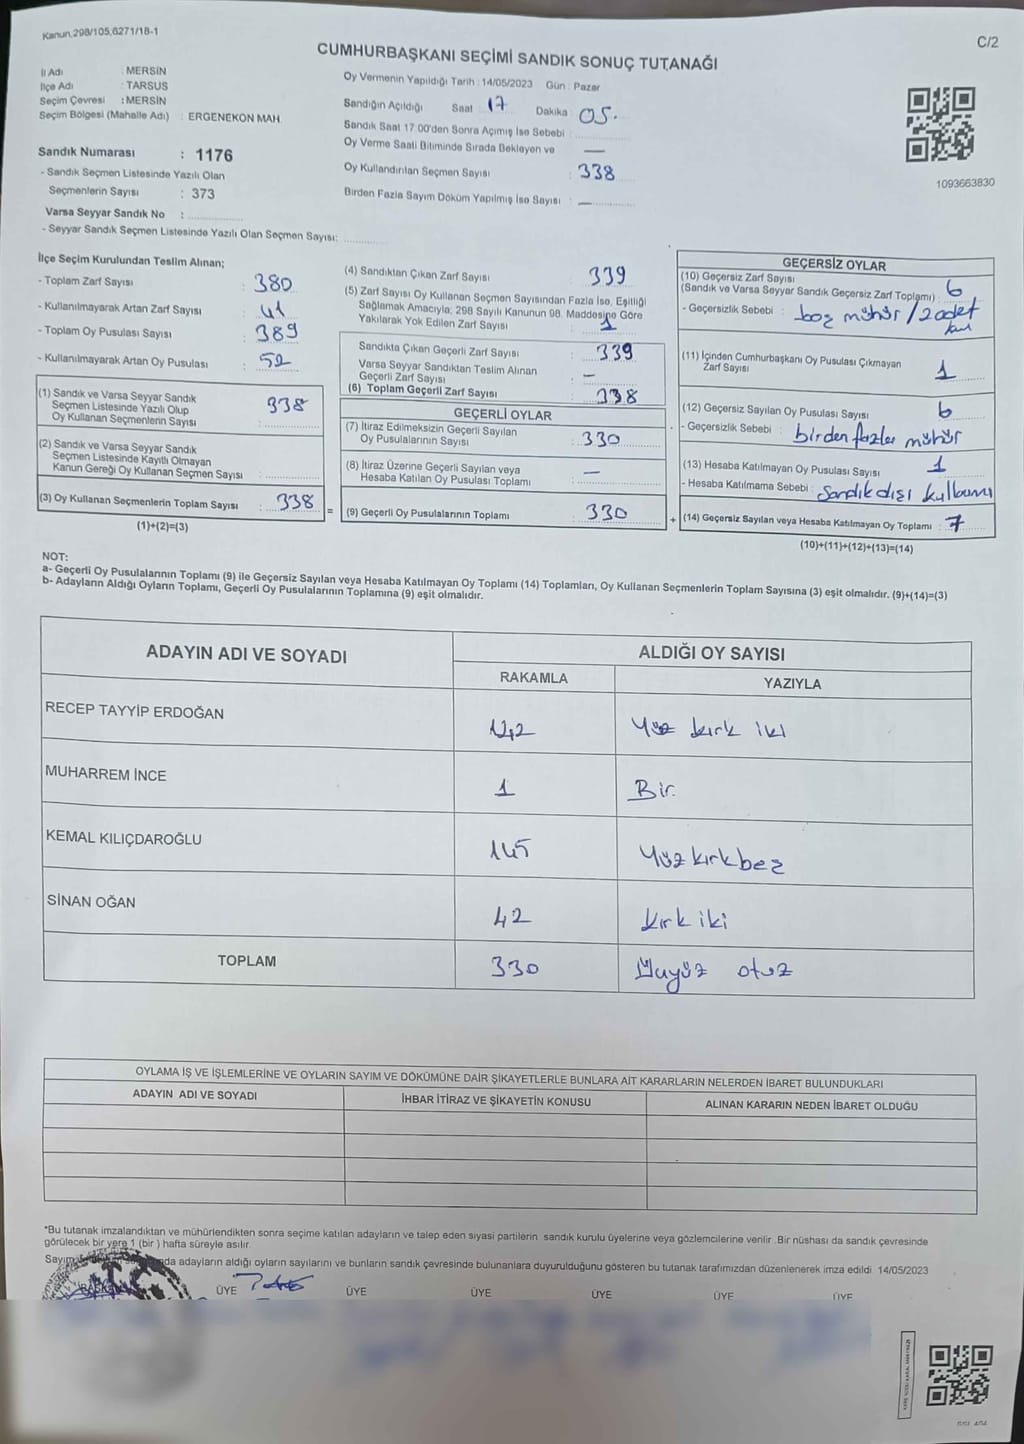 Kanun, 298/105,6271/18-1
C/2
CUMHURBAŞKANI SEÇİMİ SANDIK SONUÇ TUTANAĞI
İl Adı : MERSİN
İlçe Adı : TARSUS
Seçim Çevresi : MERSİN
Seçim Bölgesi (Mahalle Adı) : ERGENEKON MAH.
Oy Vermenin Yapıldığı Tarih : 14/05/2023 Gün : Pazar
Sandığın Açıldığı Saat : 17 Dakika : 05.
Sandık Saat 17:00'den Sonra Açımış İse Sebebi :
Oy Verme Saati Bitiminde Sırada Bekleyen ve —
Oy Kullandırılan Seçmen Sayısı : 338
Birden Fazla Sayım Döküm Yapılmış İse Sayısı : —
1093663830
Sandık Numarası : 1176
- Sandık Seçmen Listesinde Yazılı Olan
Seçmenlerin Sayısı : 373
Varsa Seyyar Sandık No :
- Seyyar Sandık Seçmen Listesinde Yazılı Olan Seçmen Sayısı:
İlçe Seçim Kurulundan Teslim Alınan;
- Toplam Zarf Sayısı : 380
- Kullanılmayarak Artan Zarf Sayısı : 41
- Toplam Oy Pusulası Sayısı : 389
- Kullanılmayarak Artan Oy Pusulası : 52
(1) Sandık ve Varsa Seyyar Sandık
Seçmen Listesinde Yazılı Olup
Oy Kullanan Seçmenlerin Sayısı : 338
(2) Sandık ve Varsa Seyyar Sandık
Seçmen Listesinde Kayıtlı Olmayan
Kanun Gereği Oy Kullanan Seçmen Sayısı :
(3) Oy Kullanan Seçmenlerin Toplam Sayısı : 338
(1)+(2)=(3)
(4) Sandıktan Çıkan Zarf Sayısı : 339
(5) Zarf Sayısı Oy Kullanan Seçmen Sayısından Fazla İse, Eşitliği
Sağlamak Amacıyla; 298 Sayılı Kanunun 98. Maddesine Göre
Yakılarak Yok Edilen Zarf Sayısı : 1
Sandıkta Çıkan Geçerli Zarf Sayısı : 339
Varsa Seyyar Sandıktan Teslim Alınan
Geçerli Zarf Sayısı : —
(6) Toplam Geçerli Zarf Sayısı : 338
GEÇERLİ OYLAR
(7) İtiraz Edilmeksizin Geçerli Sayılan
Oy Pusulalarının Sayısı : 330
(8) İtiraz Üzerine Geçerli Sayılan veya
Hesaba Katılan Oy Pusulası Toplamı : —
=
(9) Geçerli Oy Pusulalarının Toplamı : 330
GEÇERSİZ OYLAR
(10) Geçersiz Zarf Sayısı
(Sandık ve Varsa Seyyar Sandık Geçersiz Zarf Toplamı) : 6
- Geçersizlik Sebebi : boş mühür / 2 adet
(11) İçinden Cumhurbaşkanı Oy Pusulası Çıkmayan
Zarf Sayısı : 1
(12) Geçersiz Sayılan Oy Pusulası Sayısı : 6
- Geçersizlik Sebebi : birden fazla mühür
(13) Hesaba Katılmayan Oy Pusulası Sayısı : 1
- Hesaba Katılmama Sebebi : Sandık dışı kullanımı
+
(14) Geçersiz Sayılan veya Hesaba Katılmayan Oy Toplamı : 7
(10)+(11)+(12)+(13)=(14)
NOT:
a- Geçerli Oy Pusulalarının Toplamı (9) ile Geçersiz Sayılan veya Hesaba Katılmayan Oy Toplamı (14) Toplamları, Oy Kullanan Seçmenlerin Toplam Sayısına (3) eşit olmalıdır. (9)+(14)=(3)
b- Adayların Aldığı Oyların Toplamı, Geçerli Oy Pusulalarının Toplamına (9) eşit olmalıdır.
ADAYIN ADI VE SOYADI
ALDIĞI OY SAYISI
RAKAMLA YAZIYLA
RECEP TAYYİP ERDOĞAN 142 Yüz kırk iki
MUHARREM İNCE 1 Bir.
KEMAL KILIÇDAROĞLU 145 Yüzkırkbeş
SİNAN OĞAN 42 Kırk iki
TOPLAM 330 Üçyüz otuz
OYLAMA İŞ VE İŞLEMLERİNE VE OYLARIN SAYIM VE DÖKÜMÜNE DAİR ŞİKAYETLERLE BUNLARA AİT KARARLARIN NELERDEN İBARET BULUNDUKLARI
ADAYIN ADI VE SOYADI İHBAR İTİRAZ VE ŞİKAYETİN KONUSU ALINAN KARARIN NEDEN İBARET OLDUĞU
*Bu tutanak imzalandıktan ve mühürlendikten sonra seçime katılan adayların ve talep eden siyasi partilerin sandık kurulu üyelerine veya gözlemcilerine verilir .Bir nüshası da sandık çevresinde
görülecek bir yere 1 (bir ) hafta süreyle asılır.
Sayım nda adayların aldığı oyların sayılarını ve bunların sandık çevresinde bulunanlara duyurulduğunu gösteren bu tutanak tarafımızdan düzenlenerek imza edildi 14/05/2023
BAŞKAN ÜYE ÜYE ÜYE ÜYE ÜYE ÜYE